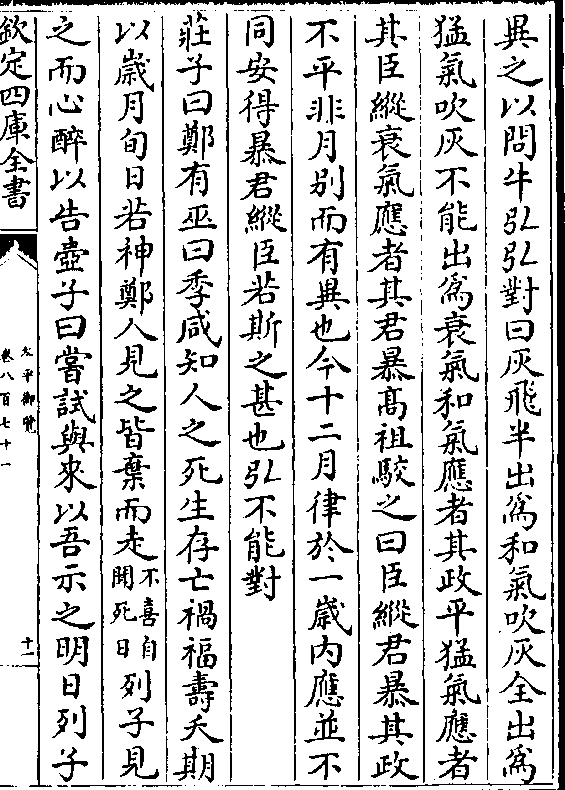 異之以問牛弘弘對曰灰飛半出爲和氣吹灰全出爲
猛氣吹灰不能出爲衰氣和氣應者其政平猛氣應者
其臣縱衰氣應者其君暴髙祖駮之曰臣縱君暴其政
不平非月别而有異也今十二月律於一歲内應並不
同安得暴君縱臣若斯之甚也弘不能對
莊子曰鄭有巫曰季咸知人之死生存亡禍福壽夭期
以歲月旬日若神鄭人見之皆棄而走不喜自聞死日列子見
之而心醉以告壺子曰嘗試與來以吾示之明日列子
欽定四庫全書
太平御覽
卷八百七十一
十一